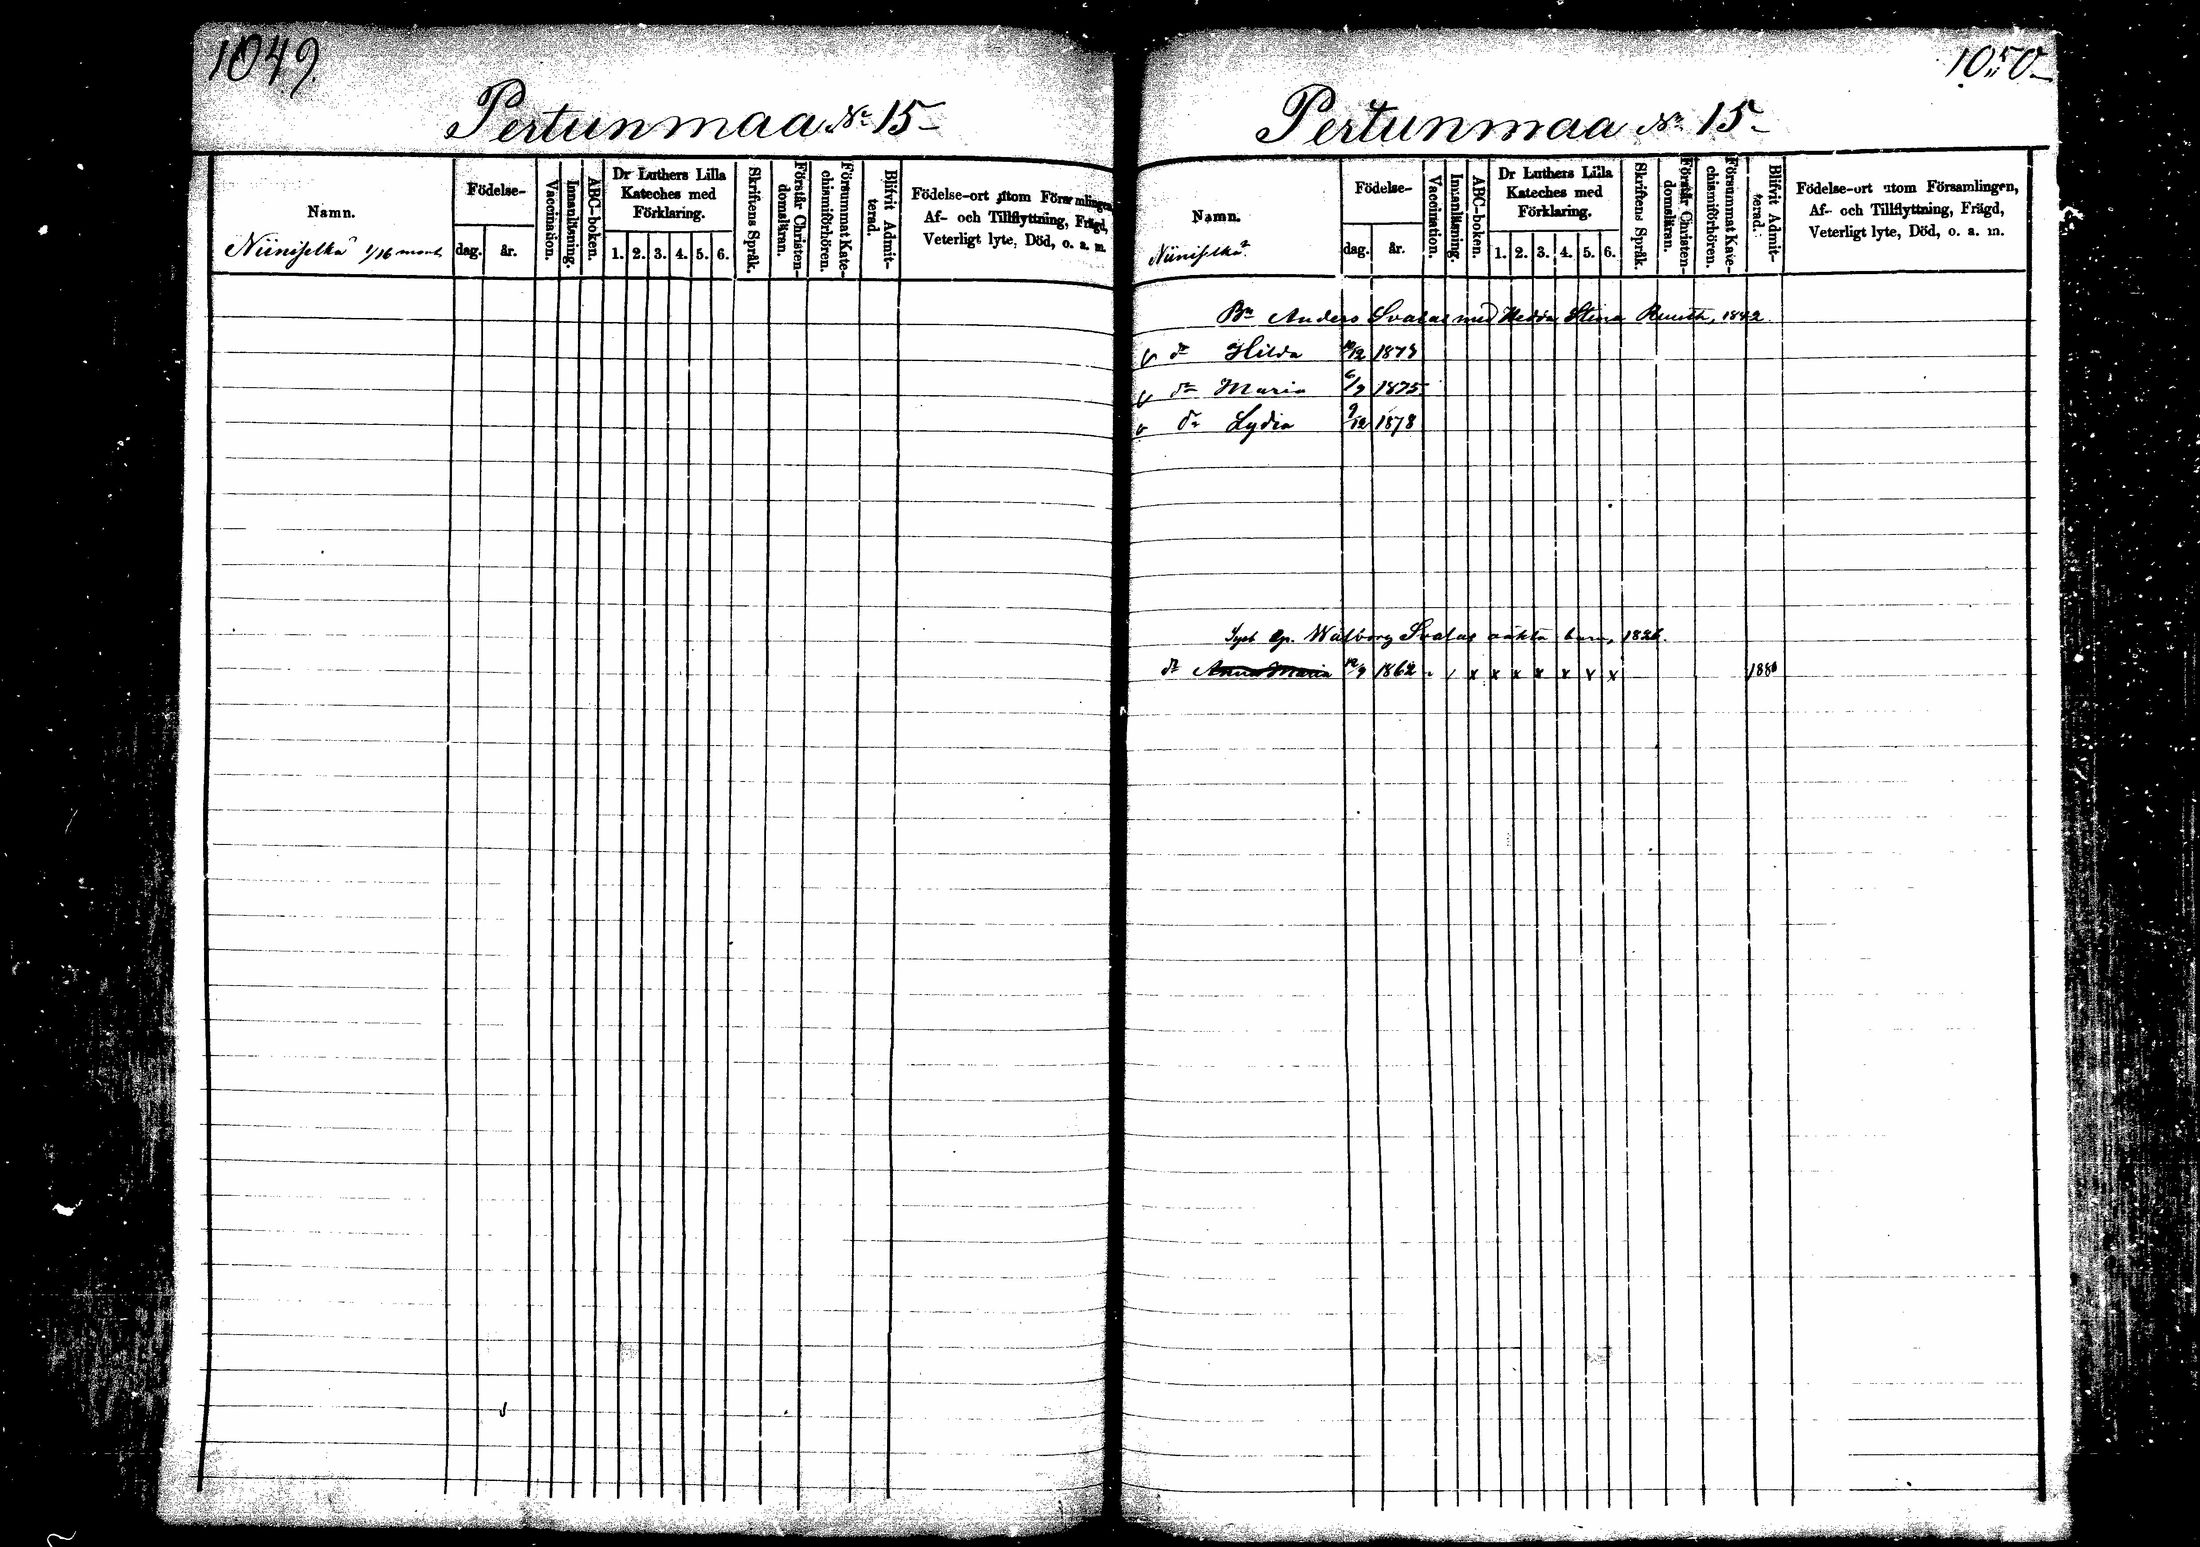 1049.
Pertunmaa No 15
Namn.
Niiniselkä 1/16 mant
Födelse-
dag. år.
Vaccination.
Innanläsning.
ABC-boken.
Dr Luthers Lilla
Kateches med
Förklaring.
1. 2. 3. 4. 5. 6.
Skriftens Språk.
Förstår Christen-
domsläran.
Försummat Kate-
chismiförhören.
Blifvit Admit-
terad.
Födelse-ort utom Församlingen,
Af- och Tillflyttning, Frägd,
Veterligt lyte, Död, o. a. m.
1050
Pertunmaa No 15
Namn.
Niiniselkä
Födelse-
dag. år.
Vaccination.
Innanläsning.
ABC-boken.
Dr Luthers Lilla
Kateches med
Förklaring.
1. 2. 3. 4. 5. 6.
Skriftens Språk.
Förstår Christen-
domsläran.
Försummat Kate-
chismiförhören.
Blifvit Admit-
terad.
Födelse-ort utom Församlingen,
Af- och Tillflyttning, Frägd,
Veterligt lyte, Död, o. a. m.
Bn Anders Svalas med Hedda Stina Ruuth, 1842.
dr Hilda /12 1873
dr Maria 6/9 1875
dr Lydia 9/12 1878
Wallborg Svalas oäkta barn, 1826.
dr Anna Maria 12/9 1862 x x x x x x x 1880